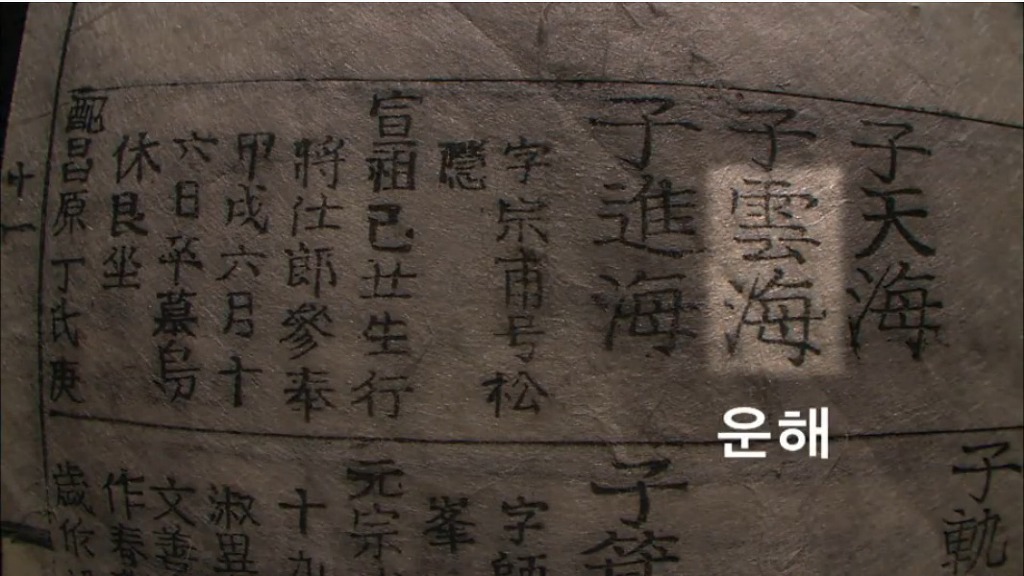 子天海
子雲海
子進海
字宗甫号松
隱
宣祖己丑生行
將仕郎參奉
甲戌六月十
六日卒墓烏
休艮坐
配昌原丁氏庚
운해
子軌
子
字師
峯
元宗
十九
淑異
文善
作春
歲
十一